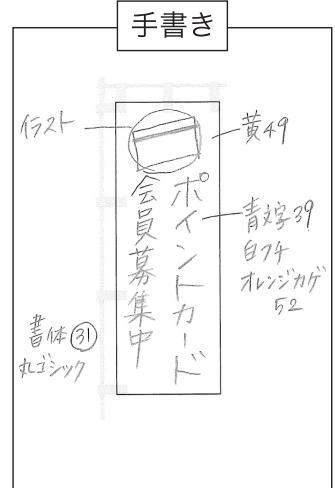 手書き
イラスト
黄49
ポイントカード
会員募集中
青文字39
白フチ
オレンジカゲ
52
書体㉛
丸ゴシック